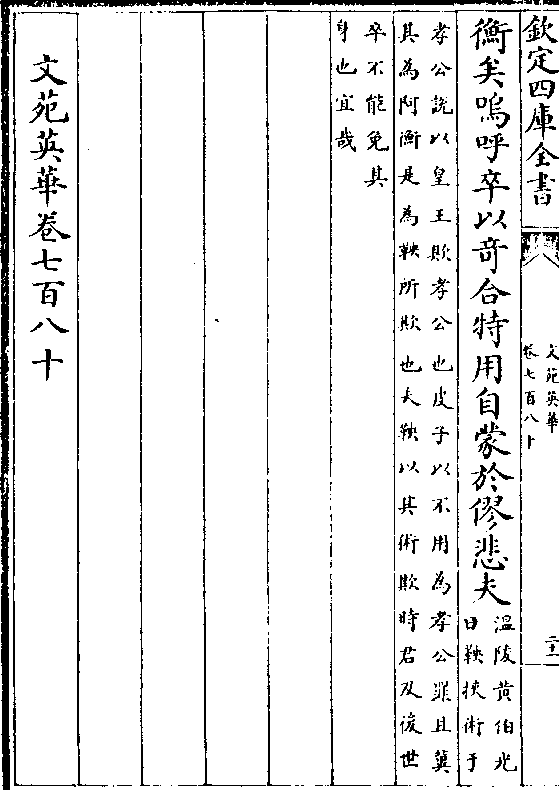 欽定四庫全書
文苑英華
卷七百八十
二十一
衡矣嗚呼卒以奇合特用自蒙於僇悲夫
溫陵黄伯光
曰鞅挾術于
孝公説以皇王欺孝公也皮子以不用為孝公罪且冀
其為阿衡是為鞅所欺也夫鞅以其術欺時君及後世
卒不能免其
身也宜哉
文苑英華卷七百八十